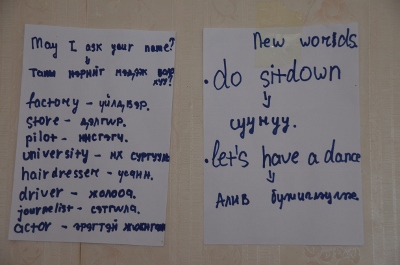 May I ask your name?
Таны нэрийг мэдэж
factory - үйлдвэр.
store - дэлгүүр.
pilot - нисгэгч.
university - их сургууль
hairdresser - үсчин.
driver - жолооч.
journalist -
actor - эрэгтэй жүжигчин
New worlds.
· do sitdown
суунуу.
· let's have a dance
Алив